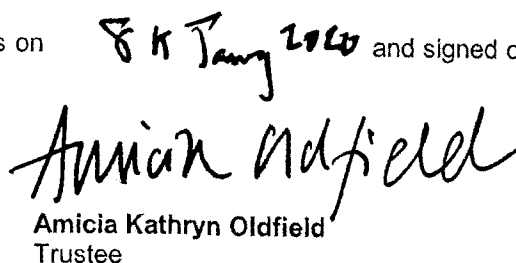 s on 8th Jany 2020 and signed o
Amicia Oldfield
Amicia Kathryn Oldfield
Trustee